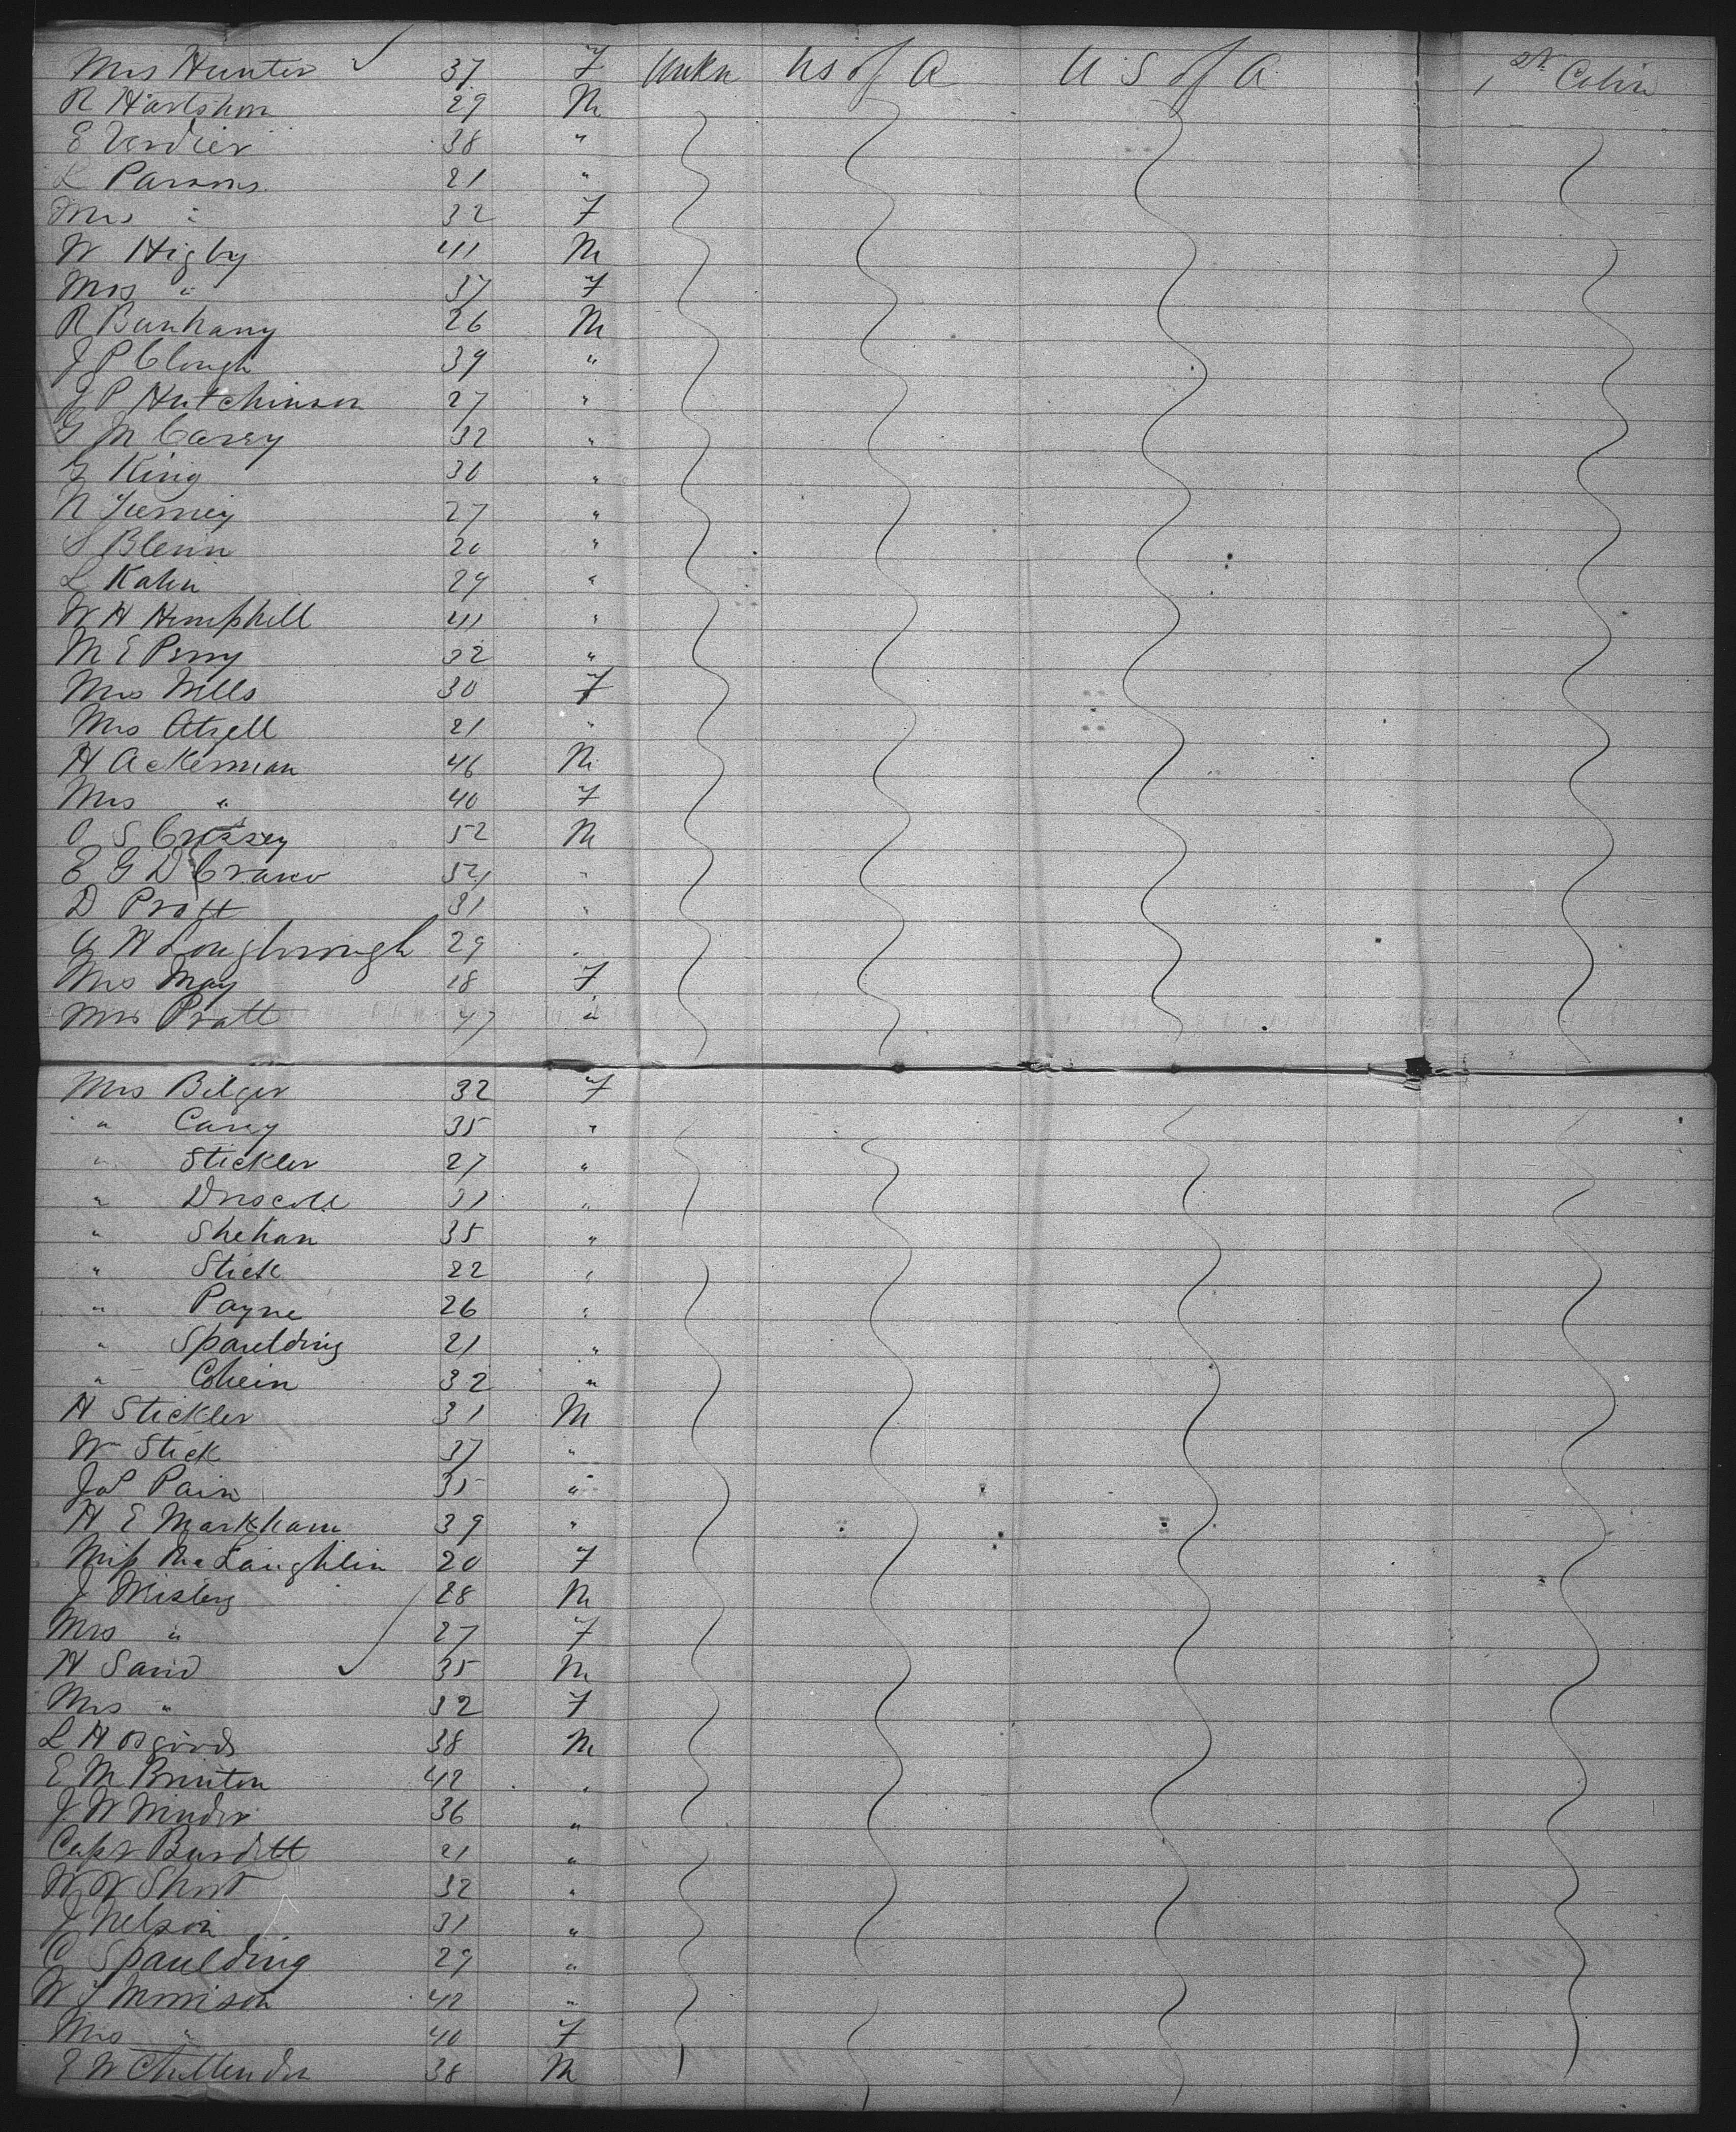 Mrs Hunter 37 F Unkn U S of A U S of A 1st Cabin
R Hartshorn 29 M
E Verdier 38 "
L Parsons 21 "
Mrs " 32 F
W Higby 41 M
Mrs " 37 F
R Bunhany 26 M
J P Clough 39 "
J P Hutchinson 27 "
G M Casey 32 "
King 30 "
N Tierney 27 "
S Blenn 20 "
L Kahn 29 "
W H Hemphill 41 "
M E Perry 32 "
Mrs Wells 30 F
Mrs Atzell 21 "
H Ackerman 46 M
Mrs " 40 F
O S Cressey 52 M
E G D Crano "
D Pratt 31 "
A H Loughborough 29 "
Mrs May 18 F
Mrs Pratt 47 "
Mrs Bilger 32 F
" Casey 35 "
" Stickler 27 "
" Driscoll 31 "
" Shehan 35 "
" Stick 22 "
" Payne 26 "
" Spaulding 21 "
" Cohein 32 "
H Stickler 31 M
Wm Stick 37 "
Jas Pain 35 "
H E Markham 39 "
Miss McLaughlin 20 F
J Misberg 28 M
Mrs " 27 F
H Sand 35 M
Mrs " 32 F
L H Osgoods 38 M
E M Brinton 42 "
J W Winder 36 "
Capt Burditt 21 "
W W Short 32 "
J Nelson 31 "
C Spaulding 29 "
W J Morrison 42 "
Mrs " 40 F
E W Chittenden 38 M